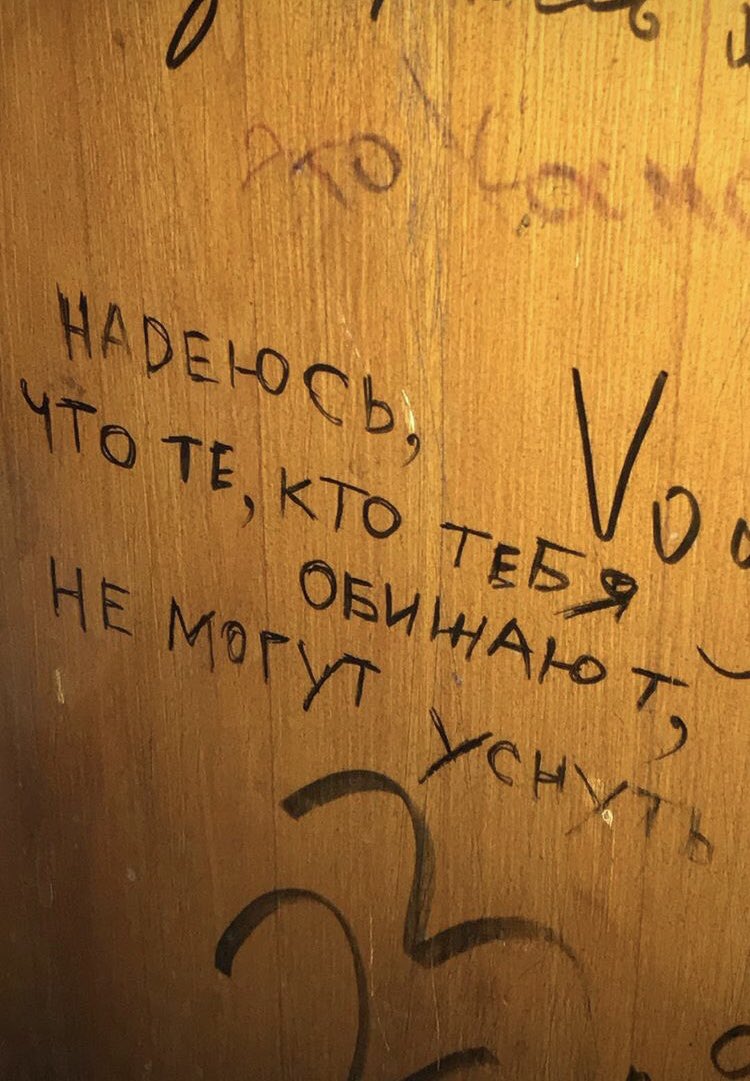 это
НАДЕЮСЬ,
ЧТО ТЕ, КТО ТЕБЯ
ОБИЖАЮТ,
НЕ МОГУТ УСНУТЬ